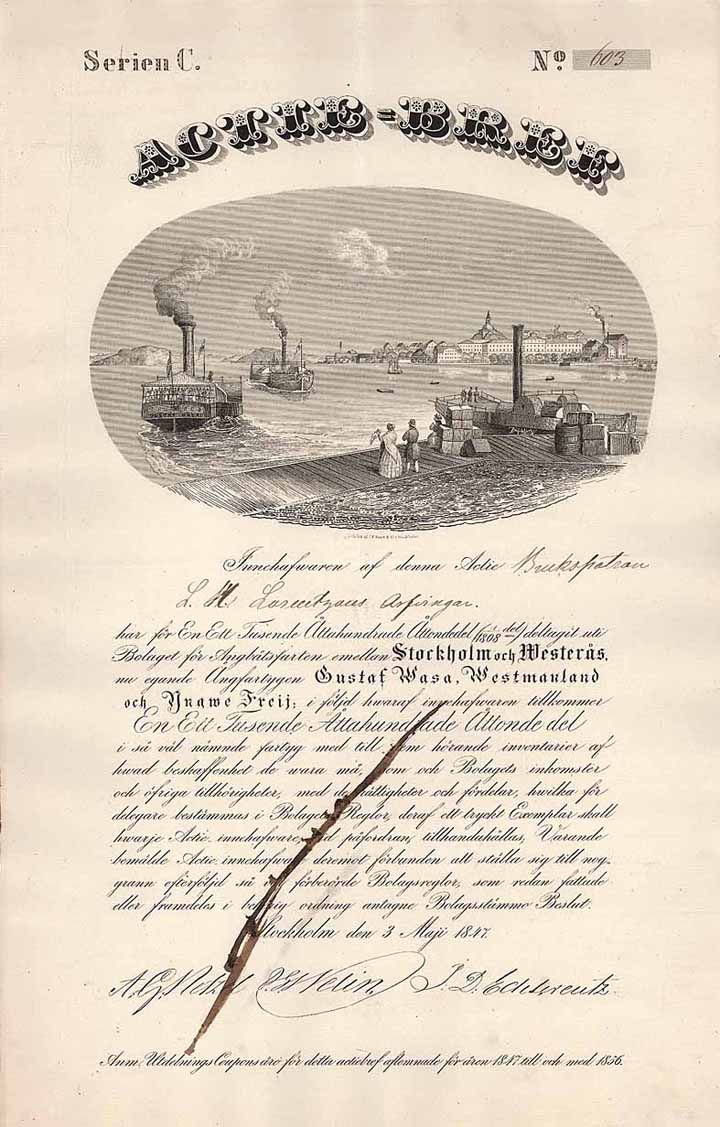 Serien C.
No. 603
ACTIE=BREF
Innehafwaren af denna Actie Brukspatron
L. H. Lorentzons Arfvingar.
har för En Ett Tusende Åttahundrade Åttondedel (1/1808 del) deltagit uti
Bolaget för Ångbåtsfarten emellan Stockholm och Westerås,
nu egande Ångfartygen Gustaf Wasa, Westmanland
och Yngwe Freij; i följd hwaraf innehafwaren tillkommer
En Ett Tusende Åttahundrade Åttonde del
i så väl nämnde fartyg med till dem hörande inventarier af
hwad beskaffenhet de wara må, som och Bolagets inkomster
och öfriga tillhörigheter, med de rättigheter och fördelar, hwilka för
delegare bestämmas i Bolagets Reglor, deraf ett tryckt Exemplar skall
hwarje Actie-innehafware, vid påfordran, tillhandahållas, Varande
bemälde Actie-innehafware deremot förbunden att ställa sig till nog-
grann efterföljd så väl förberörde Bolagsreglor, som redan fattade
eller framdeles i behörig ordning antagne Bolagsstämmo Beslut.
Stockholm den 3 Maji 1847.
A. G. Welin J. D.
Anm. Utdelnings Coupons äro för detta actiebref aflemnade för åren 1847 till och med 1856.